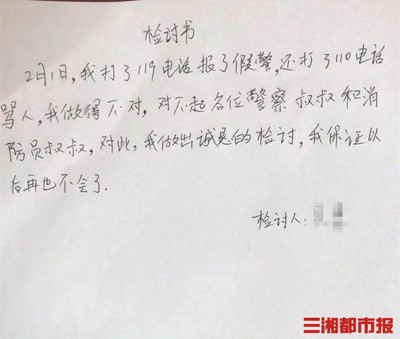 检讨书
2月1日,我打了119电话报了假警,还打了110电话
骂人,我做得不对,对不起各位警察叔叔和消
防员叔叔,对此,我做出诚恳的检讨,我保证以
后再也不会了.
检讨人:
三湘都市报